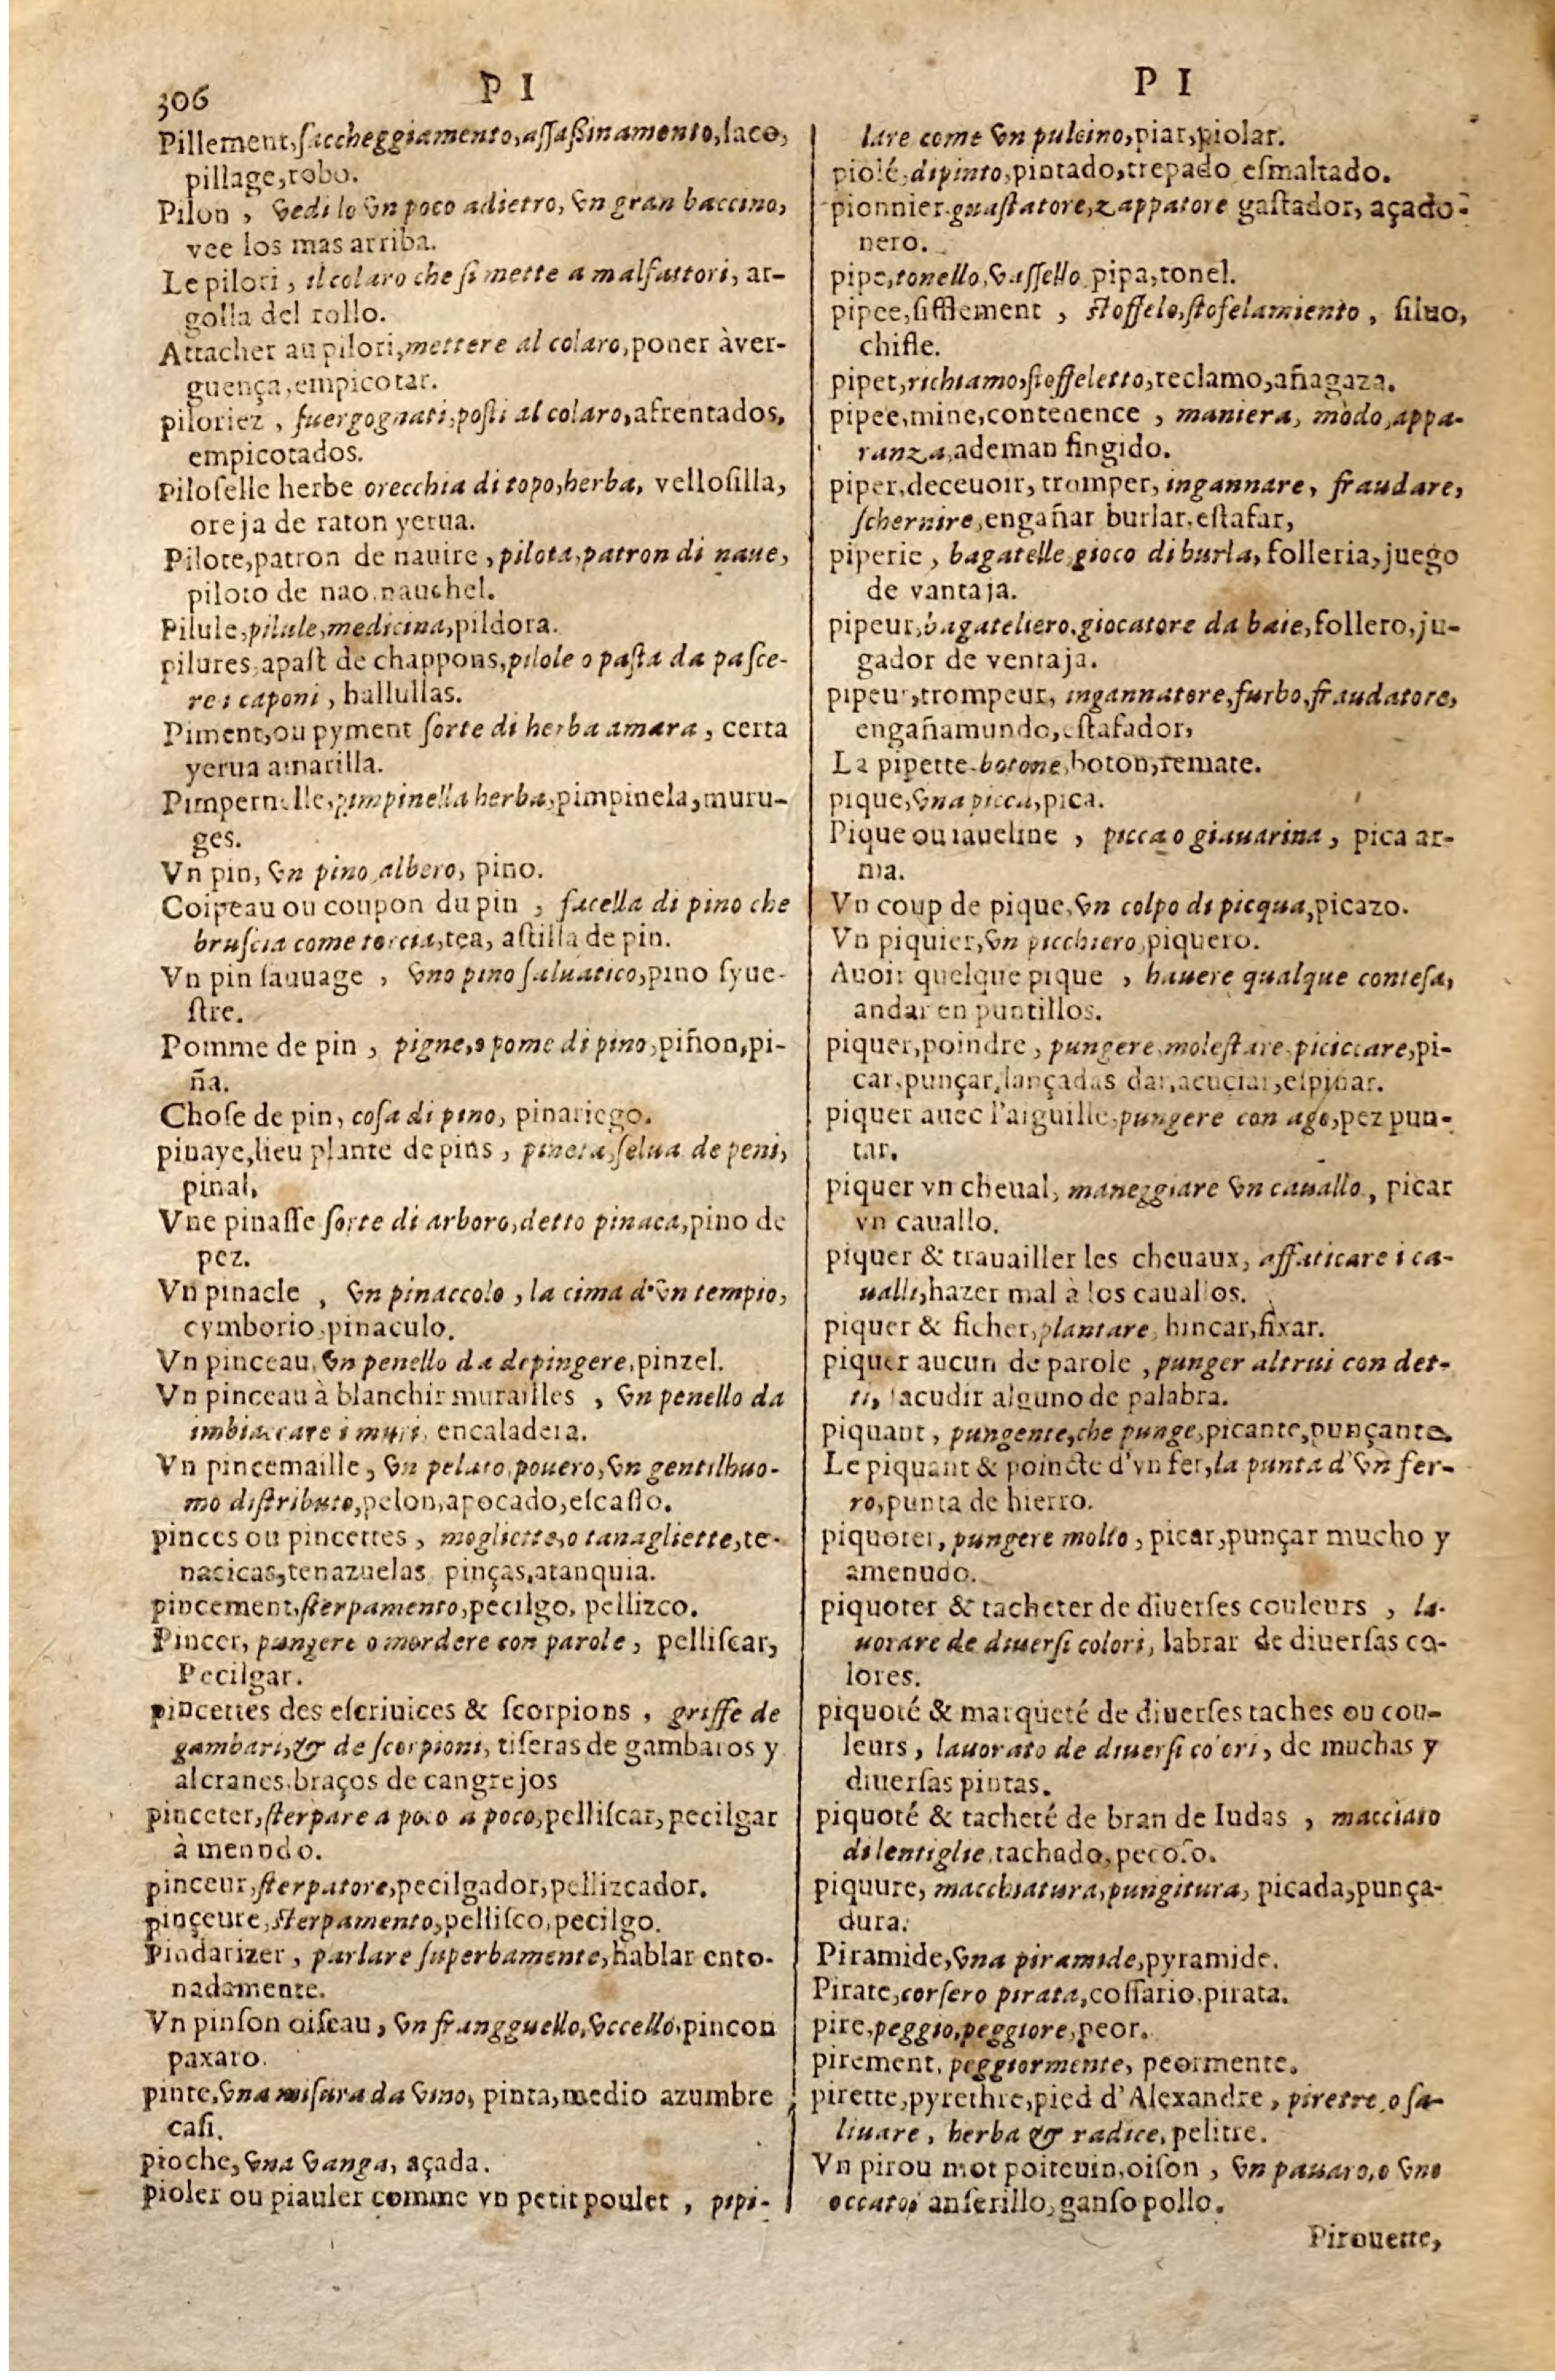 306
P I
Pillement, ſaccheggiamento, aſſaßinamento, ſaco,
pillage, robo.
Pilon, vedi lo vn poco adietro, vn gran baccino,
vee los mas arriba.
Le pilori, il colaro che ſi mette a malfattori, ar-
golla del rollo.
Attacher au pilori, mettere al colaro, poner à ver-
guença, empicotar.
piloriez, ſuergognati, poſti al colaro, afrentados,
empicotados.
Piloſelle herbe orecchia di topo, herba, velloſilla,
oreja de raton yerua.
Pilote, patron de nauire, pilota, patron di naue,
piloto de nao, nauchel.
Pilule, pilule, medicina, pildora.
pilures, apaſt de chappons, pilole o paſta da paſce-
re i caponi, hallullas.
Piment, ou pyment ſorte di herba amara, certa
yerua amarilla.
Pimpernelle, pimpinella herba, pimpinela, muru-
ges.
Vn pin, vn pino albero, pino.
Coipeau ou coupon du pin, facella di pino che
bruſcia come torcia, tea, aſtilla de pin.
Vn pin ſauuage, vno pino ſaluatico, pino ſyue-
ſtre.
Pomme de pin, pigne, o pome di pino, piñon, pi-
ña.
Choſe de pin, coſa di pino, pinariego.
pinaye, lieu plante de pins, pineta, ſelua de peni,
pinal,
Vne pinaſſe ſorte di arboro, detto pinaca, pino de
pez.
Vn pinacle, vn pinaccolo, la cima d'vn tempio,
cymborio, pinaculo.
Vn pinceau, vn penello da depingere, pinzel.
Vn pinceau à blanchir murailles, vn penello da
imbiaccare i muri, encaladera.
Vn pincemaille, vn pelato, pouero, vn gentilhuo-
mo diſtributo, pelon, apocado, eſcaſſo.
pinces ou pincettes, mogliette, o tanagliette, te-
nacicas, tenazuelas, pinças, atanquia.
pincement, ſterpamento, pecilgo, pellizco.
Pincer, pungere o mordere con parole, pelliſcar,
Pecilgar.
pincettes des eſcriuices & ſcorpions, griffe de
gambari, & de ſcorpioni, tiſeras de gambaros y
alcranes, braços de cangrejos
pinceter, ſterpare a poco a poco, pelliſcar, pecilgar
à menudo.
pinceur, ſterpatore, pecilgador, pellizcador.
pinçeure, ſterpamento, pelliſco, pecilgo.
Pindarizer, parlare ſuperbamente, hablar ento-
nadamente.
Vn pinſon oiſeau, vn frangguello, vccello, pincon
paxaro.
pinte, vna miſura da vino, pinta, medio azumbre
caſi.
pioche, vna vanga, açada.
pioler ou piauler comme vn petit poulet, pipi-
P I
lare come vn pulcino, piar, piolar.
piolé, dipinto, pintado, trepado eſmaltado.
pionnier guaſtatore, zappatore gaſtador, açado-
nero.
pipe, tonello, vaſſello pipa, tonel.
pipee, ſifflement, ſtoffelo, ſtofelamiento, ſiluo,
chifle.
pipet, richiamo, ſtoffeletto, reclamo, añagaza.
pipee, mine, contenence, maniera, modo, appa-
ranza, ademan fingido.
piper, deceuoir, tromper, ingannare, fraudare,
ſchernire, engañar burlar, eſtafar,
piperie, bagatelle, gioco di burla, folleria, juego
de vantaja.
pipeur, bagateliero, giocatore da baie, follero, ju-
gador de ventaja.
pipeur, trompeur, ingannatore, furbo, fraudatore,
engañamundo, eſtafador,
La pipette botone, boton, remate.
pique, vna picca, pica.
Pique ou iaueline, picca o giauarina, pica ar-
ma.
Vn coup de pique, vn colpo di picqua, picazo.
Vn piquier, vn picchiero, piquero.
Auoir quelque pique, hauere qualque conteſa,
andar en puntillos.
piquer, poindre, pungere, moleſtare, piciccare, pi-
car, punçar, lançadas dar, acuciar, eſpinar.
piquer auec l'aiguille, pungere con ago, pez pun-
tar.
piquer vn cheual, maneggiare vn cauallo, picar
vn cauallo.
piquer & trauailler les cheuaux, affaticare i ca-
ualli, hazer mal à los cauallos.
piquer & ficher, plantare, hincar, fixar.
piquer aucun de parole, punger altrui con det-
ti, ſacudir alguno de palabra.
piquant, pungente, che punge, picante, punçante.
Le piquant & poincte d'vn fer, la punta d'vn fer-
ro, punta de hierro.
piquoter, pungere molto, picar, punçar mucho y
amenudo.
piquoter & tacheter de diuerſes couleurs, la-
uorare de diuerſi colori, labrar de diuerſas co-
lores.
piquoté & marqueté de diuerſes taches ou cou-
leurs, lauorato de diuerſi colori, de muchas y
diuerſas pintas.
piquoté & tacheté de bran de Iudas, macciato
di lentiglie, tachado, pecoſo.
piquure, macchiatura, pungitura, picada, punça-
dura.
Piramide, vna piramide, pyramide.
Pirate, corſero pirata, coſſario, pirata.
pire, peggio, peggiore, peor.
pirement, peggiormente, peormente.
pirette, pyrethre, pied d'Alexandre, piretre, o ſa-
liuare, herba & radice, pelitre.
Vn pirou mot poiteuin, oiſon, vn pauaro, o vno
occato, anſerillo, ganſo pollo.
Pirouette,